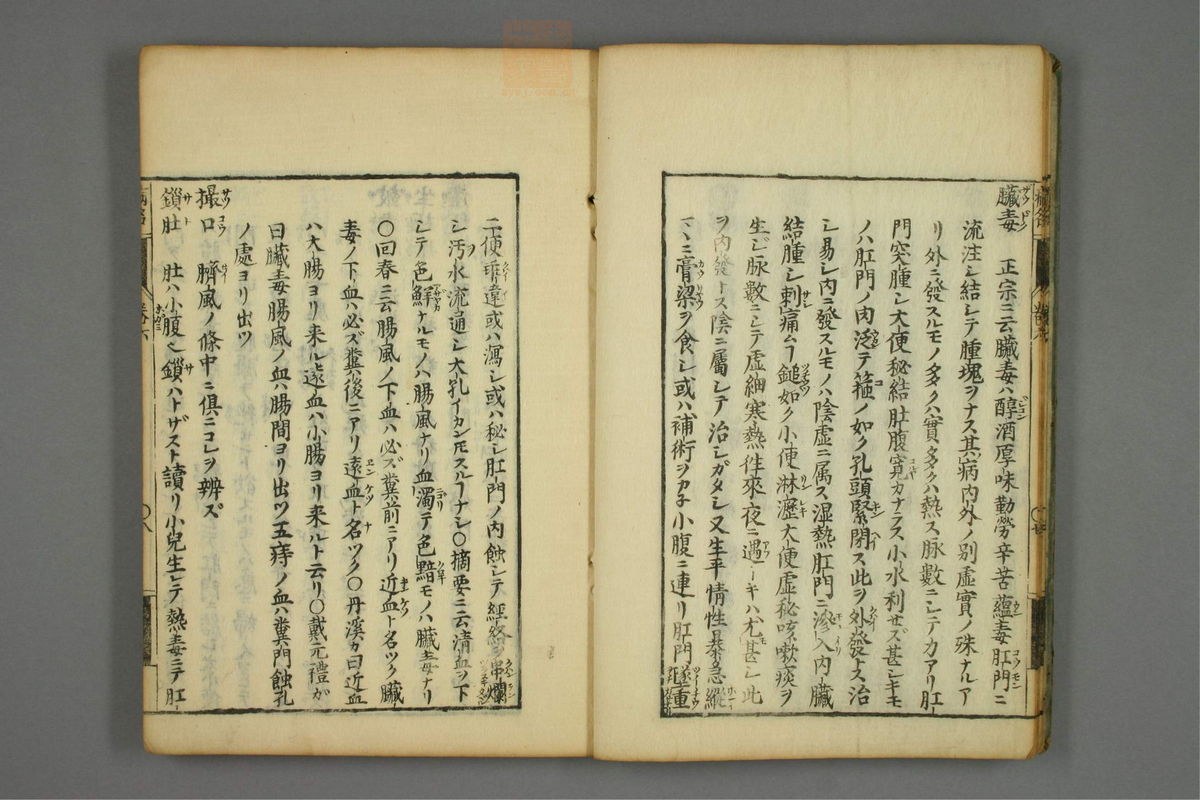 臓毒 正宗ニ云臓毒ハ醇酒厚味勤勞辛苦蘊毒肛門ニ
流注シ結シテ腫塊ヲナス其病内外ノ別虚實ノ殊ナルア
リ外ニ發スルモノ多クハ實多クハ熱ス脉數ニシテ力アリ肛
門突腫シ大便秘結肚腹寛カナラス小水利せズ甚シキモ
ノハ肛門ノ肉泛テ箍ノ如ク孔頭緊閉ス此ヲ外發トス治
シ易シ内ニ發スルモノハ陰虚ニ属ス湿熱肛門ニ滲入内臓
結腫シ刺痛ム𠃍鎚如ク小便淋瀝大便虚秘咳嗽痰ヲ
生ピ脉數ニシテ虚細寒熱徃來夜ニ遇ーキハ尤甚シ此
ヲ内發トス陰ニ屬シテ治シガタシ又生平情性暴急縱
ニ膏粱ヲ食シ或ハ補術ヲカ子小腹ニ連リ肛門墜重
二便乖違或ハ瀉シ或ハ秘シ肛門ノ内蝕シテ經絡ヲ串爛
シ汚水流通シ大孔イカンモスル𠃍ナシ〇摘要ニ云清血ヲ下
シテ色鮮ナルモノハ腸風ナリ血濁テ色黯モノハ臓毒ナリ
〇回春ニ云腸風ノ下血ハ必ズ糞前ニアリ近血ト名ツク臓
毒ノ下血ハ必ズ糞後ニアリ遠血ト名ツク〇丹溪カ曰近血
ハ大腸ヨリ来ル遠血ハ小腸ヨリ来ルト云リ〇戴元禮ガ
曰臓毒腸風ノ血ハ腸間ヨリ出ツ五痔ノ血ハ糞門蝕孔
ノ處ヨリ出ツ
撮口 臍風ノ條中ニ俱ニコレヲ辨ズ
鎖肚 肚ハ小腹也鎖ハトザスト讀リ小兒生レテ熱毒ニテ肛